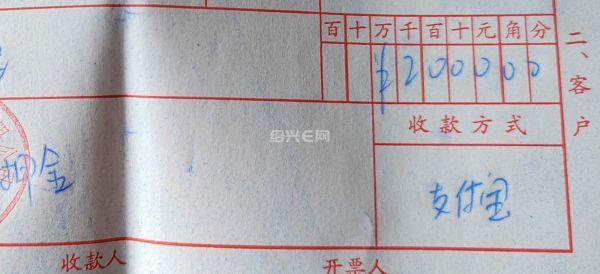 百十万千百十元角分
¥2000 00
二、客户
收款方式
押金
支付宝
收款人
开票人
绍兴E网